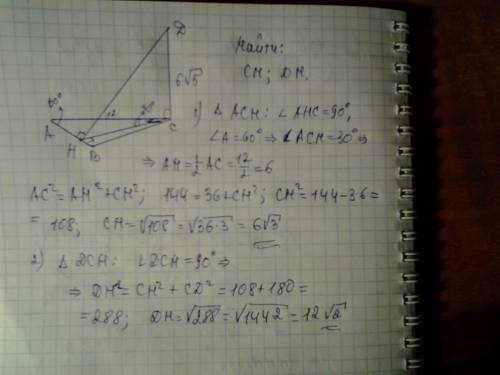 D
Найти:
CH; DH.
6√5
60°
12
30°
A
C
H
B
1) △ ACH: ∠AHC=90°,
∠A=60° ⇒ ∠ACH=30° ⇒
⇒ AH=½AC=12/2=6
AC²=AH²+CH²; 144=36+CH²; CH²=144-36=
= 108; CH=√108=√36·3=6√3
2) △ DCH: ∠DCH=90° ⇒
⇒ DH²=CH²+CD²=108+180=
=288; DH=√288=√144·2=12√2